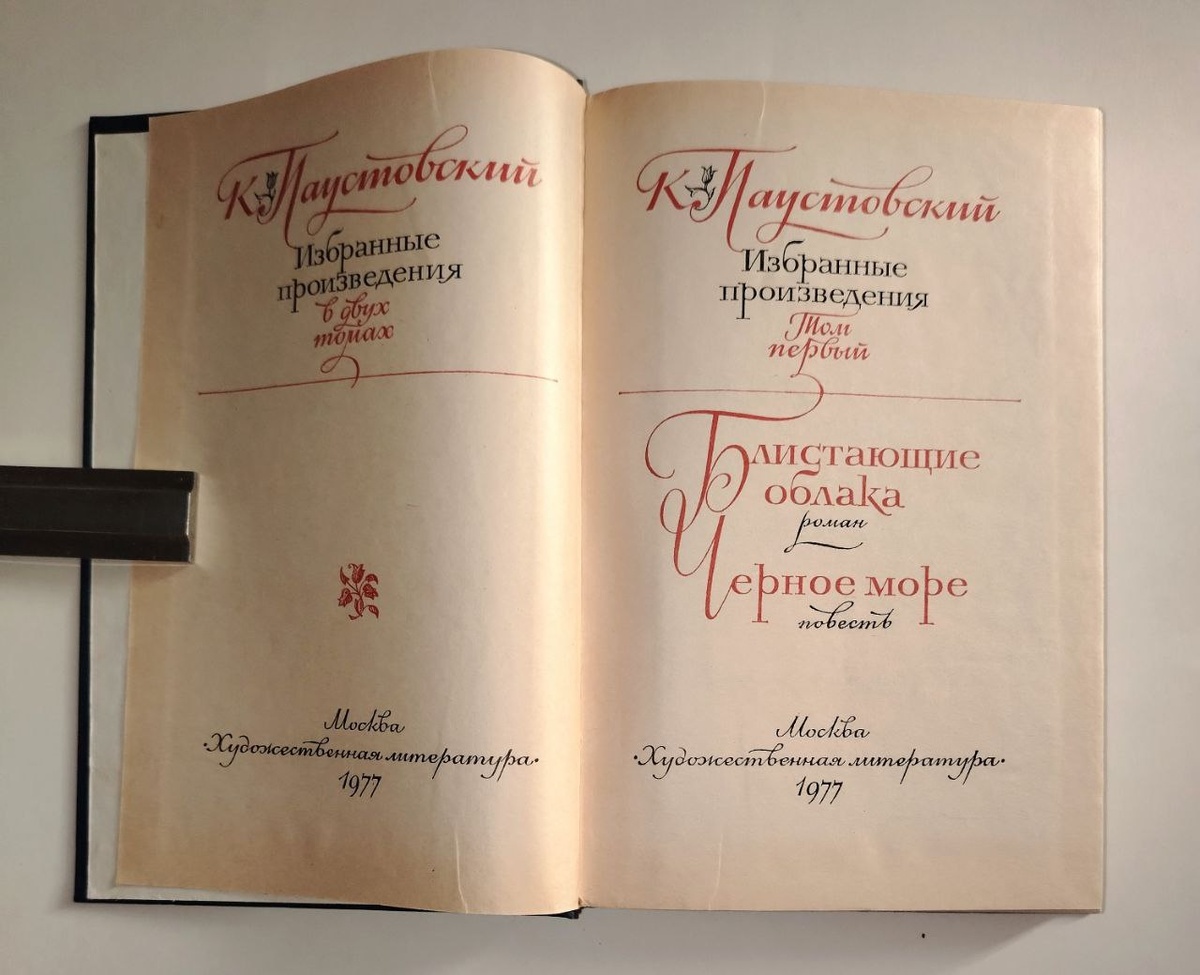 К Паустовский
Избранные
произведения
в двух
томах
Москва
·Художественная литература·
1977
К Паустовский
Избранные
произведения
Том
первый
Блистающие
облака
роман
Черное море
повесть
Москва
·Художественная литература·
1977